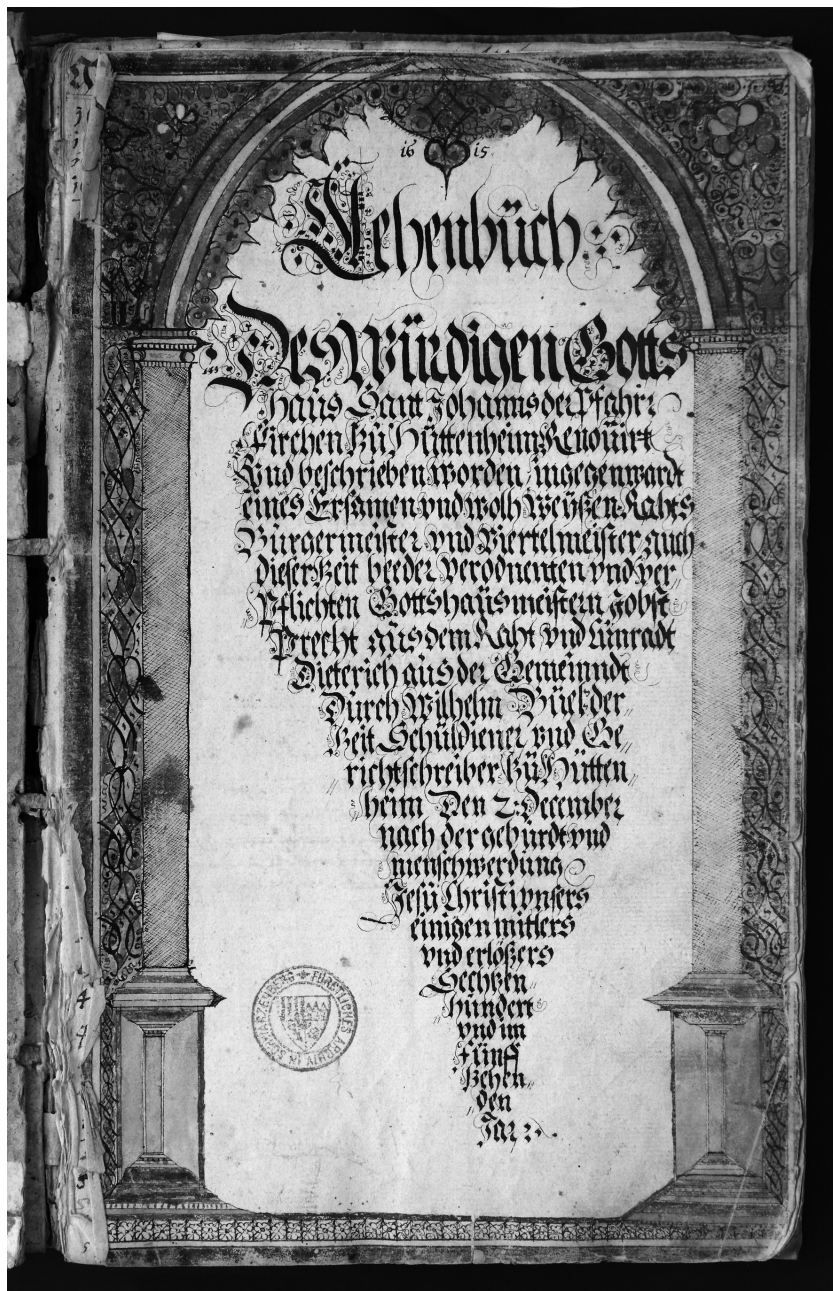 16 15
Lehenbüch
Des Würdigen Gotts
haüs Sant Johanns der Pfahrr
kirchen zü Hüttenheim Renouirt
Vnd beschrieben worden, in gegenwardt
eines Ersamen vnd wolh Weÿßen Rahts
Bürgermeister vnd Viertelmeister auch
dieser Zeit beeder verodnenten vnd ver„
Pflichten Gottshaüsmeistern Jobst
Precht aüs dem Raht vnd Cünradt
Dieterich aüs der Gemeinndt
Dürch Wilhelm Büek der
Zeit Schüldiener vnd Ge„
richtschreiber zü Hütten„
heim Den 2: December
nach der gebürdt vnd
menschwerdüng
Jesü Christi vnsers
einigen mitlers
vnd erlößers
Sechzen
hündert
vnd im
Fünff
Zehen„
den
Jar
FÜRSTLICHES ARCHIV IN SCHWARZENBERG
4
4
5
5